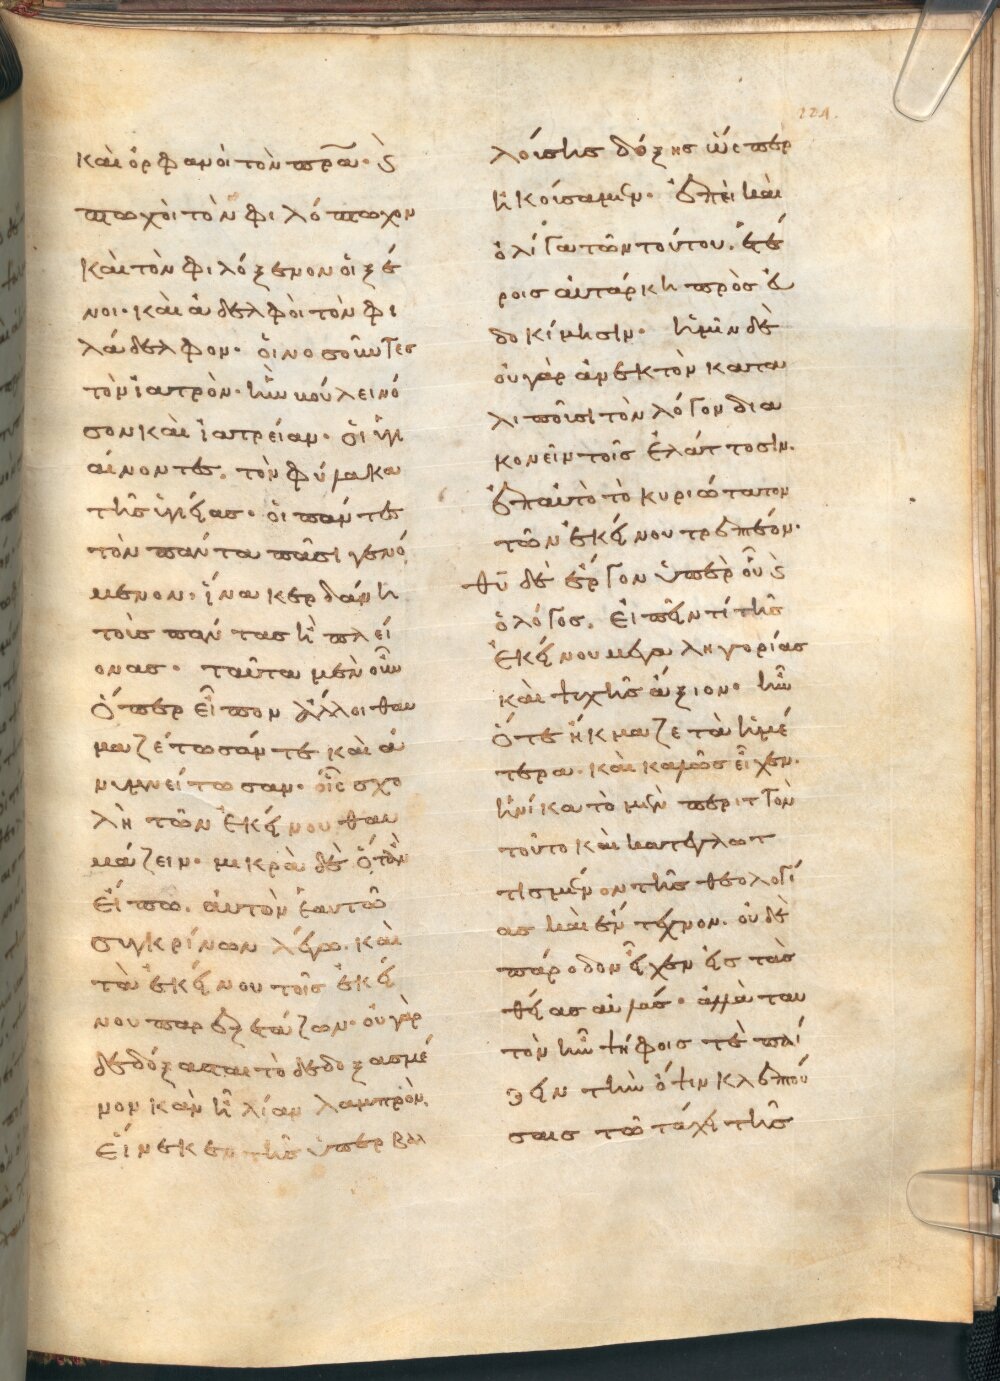 καὶ ὀρφανοὶ τὸν πρ̅α̅· ϗ
πτωχοὶ τὸν φιλόπτωχον
καὶ τὸν φιλόξενον οἱ ξέ
νοι· καὶ ἀδελφοὶ τὸν φι
λάδελφον· οἱ νοσοῦντες
τὸν ἰατρὸν· ἣν βούλει νό
σον καὶ ἰατρείαν· οἱ ὑγι
αίνοντες, τὸν φύλακα
τῆς ὑγείας· οἱ πάντες
τὸν πάντα πᾶσι γενό
μενον· ἵνα κερδάνη
τοὺς πάντας ἢ πλεί
ονας· ταῦτα μὲν οὖν
ὅπερ εἶπον ἄλλοι θαυ
μαζέτωσάν τε καὶ ἀ
νυμνείτωσαν· οἷς σχο
λὴ τῶν ἐκείνου θαυ
μάζειν· μικρὰ δὲ ὅταν
εἴπω, αὐτὸν ἑαυτῶ
συγκρίνων λέγω, καὶ
τὰ ἐκείνου τοῖς ἐκεί
νου παρεξετάζων· οὐ γὰρ
δεδόξασται τὸ δεδοξασμέ
νον κἀν ἦ λίαν λαμπρὸν,
εἵνεκεν τῆς ὑπερβαλ
λούσης δόξης ὥσπερ
ἠκούσαμεν· ἐπεὶ καὶ
ὀλίγα τῶν τούτου, ἑτέ
ροις αὐτάρκη πρὸς εὐ
δοκίμησιν· ἡμῖν δὲ
οὐ γὰρ ἀνεκτὸν κατα
λιποῦσι τὸν λόγον δια
κονεῖν τοῖς ἐλάττοσιν,
ἐπαυτὸ τὸ κυριώτατον
τῶν ἐκείνου τρεπτέον·
θ̅υ̅ δὲ ἔργον ὑπὲρ οὗ ϗ
ὁ λόγος, εἰπεῖν τί τῆς
ἐκείνου μεγαληγορίας
καὶ ψυχῆς ἄξιον· ἦν
ὅτε ἤκμαζε τὰ ἡμέ
τερα, καὶ καλῶς εἶχεν,
ἡνίκα τὸ μὲν περιττὸν
τοῦτο καὶ κατεγλωτ
τισμένον τῆς θεολογί
ας καὶ ἔντεχνον, οὐδὲ
πάροδον εἶχεν εἰς τὰς
θείας αὐλάς· ἀλλὰ ταυ
τὸν ἦν ψήφοις τὲ παί
ζειν τὴν ὄψιν κλεπτού
σαις τῶ τάχει τῆς